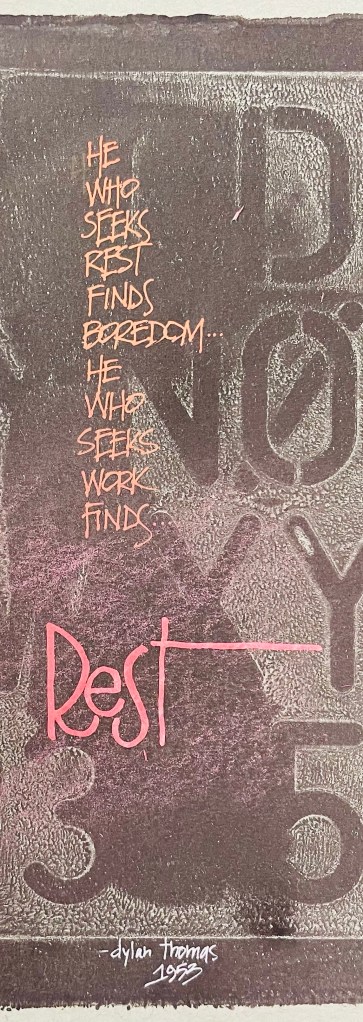 HE
WHO
SEEKS
REST
FINDS
BOREDOM...
HE
WHO
SEEKS
WORK
FINDS...
Rest
-dylan thomas
1953
D
NØ
YY
35